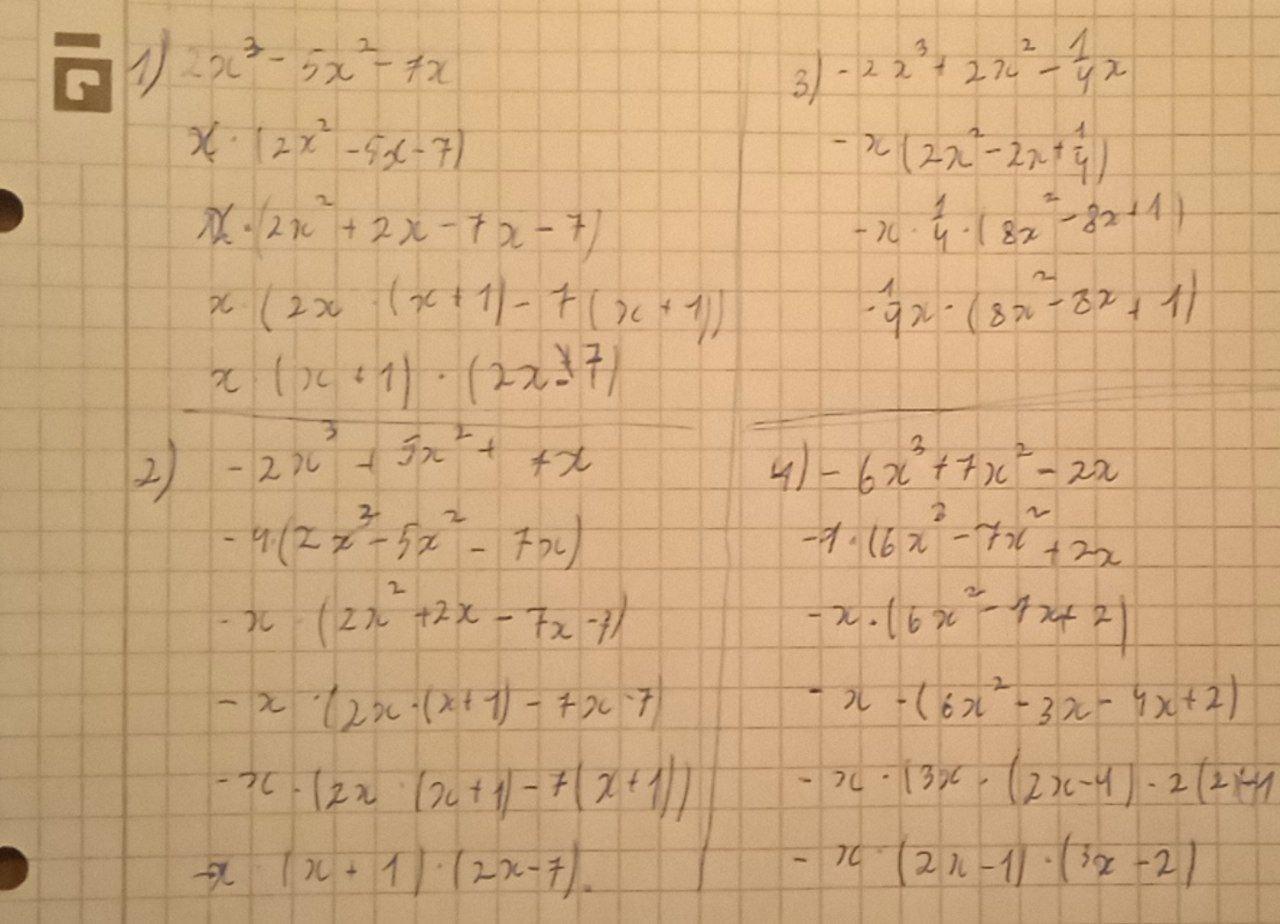 1) 2x³ - 5x² - 7x
x · (2x² - 5x - 7)
x · (2x² + 2x - 7x - 7)
x · (2x · (x + 1) - 7 (x + 1))
x · (x + 1) · (2x - 7)
2) - 2x³ + 5x² + 7x
- 1 · (2x³ - 5x² - 7x)
- x · (2x² + 2x - 7x - 7)
- x · (2x · (x + 1) - 7x - 7)
- x · (2x · (x + 1) - 7 (x + 1))
- x · (x + 1) · (2x - 7).
3) - 2x³ + 2x² - 1/4 x
- x (2x² - 2x + 1/4)
- x · 1/4 · (8x² - 8x + 1)
- 1/4 x · (8x² - 8x + 1)
4) - 6x³ + 7x² - 2x
- 1 · (6x³ - 7x² + 2x
- x · (6x² - 7x + 2)
- x · (6x² - 3x - 4x + 2)
- x · (3x · (2x - 1) - 2 (2x - 1
- x · (2x - 1) · (3x - 2)